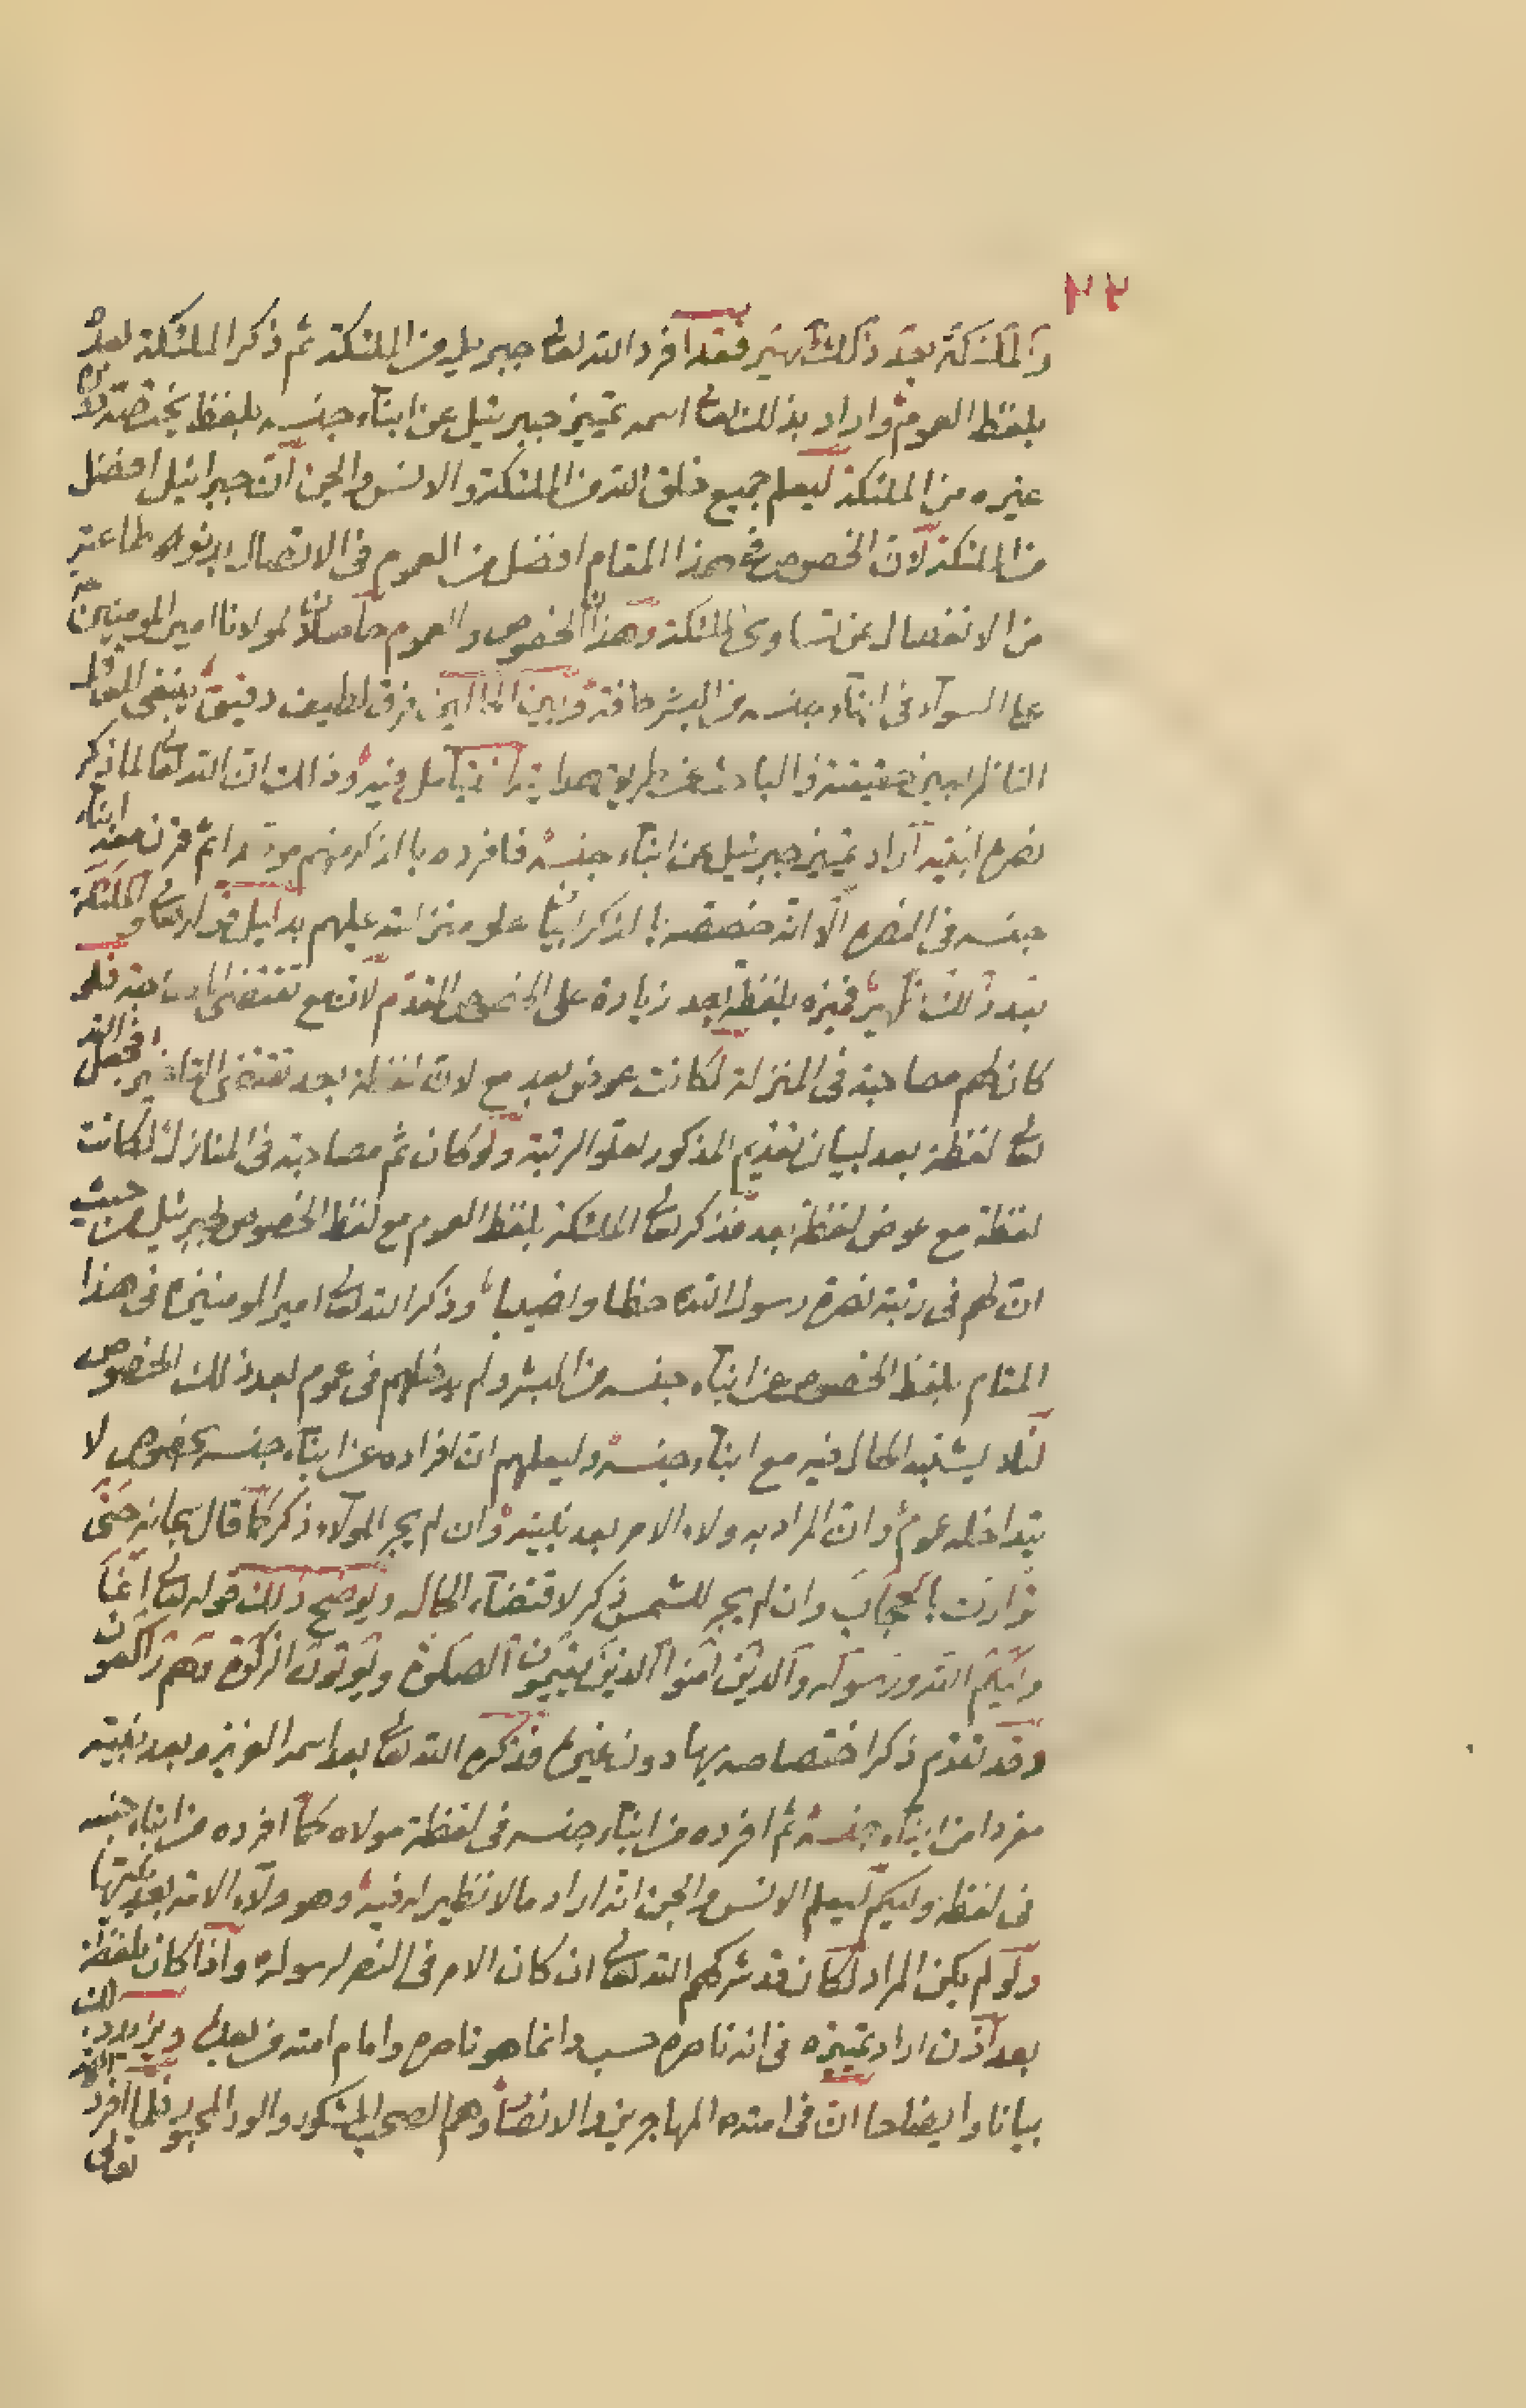 ٢٢
والملئكة بعد ذلك ظهير فقد افرد الله تعالى جبريل من الملئكة ثم ذكر الملئكة بعده
بلفظ العموم واراد بذلك تعالى اسمه تمييز جبرئيل عن ابناء جنسه بلفظ يختصه دون
غيره من الملئكة ليعلم جميع خلق الله من الملئكة والانس والجن ان جبرائيل افضل
من الملئكة لان الخصوص في هذا المقام افضل من العموم في الاتصال طاعته
من الانفصال عن تساوى الملئكة وهذا الخصوص والعموم حاصلان لمولانا امير المومنين
على السواء في ابناء جنسه من البشر كافة وبين الحالين فرق لطيف دقيق
الناظر حقيقته فيه وذلك ان الله تعالى لما ذكر
نصرة نبيه اراد تمييز جبرئيل عن ابناء جنسه فافرده بالذكر منهم ثم قرن معه ابناء
جنسه في النصرة الا انه خصصه بالذكر علو منزلته عليهم بدليل قوله تعالى والملئكة
بعد ذلك ظهير فميزه بلفظة بعد زيادة على الخصوص المتقدم لان مع تقتضى المصاحبة فلو
كان لهم مصاحبة في المنزلة لكانت عوض بعد مع لان لفظة بعد تقتضى التاخير فجعل الله
تعالى لفظة بعد لبيان تقديم المذكور لعلو الرتبة ولو كان ثم مصاحبة في المنازل لكانت
لفظة مع عوض لفظة بعد فذكر تعالى الملئكة بلفظ العموم مع لفظ الخصوص لجبرئيل من حيث
ان لهم في رتبة نصرة رسول الله حظا ونصيبا وذكر الله تعالى امير المومنين في هذا
المقام بلفظ الخصوص عن ابناء جنسه من البشر ولم يدخلهم في عموم بعد ذلك الخصوص
لئلا يشتبه الحال فيه مع ابناء جنسه وليعلمهم ان افراده عن ابناء جنسه بخصوص لا
يتداخله عموم وان المراد به ولاء الامر بعد نبيه وان لم يجر للولاء ذكر كما قال سبحانه حتى
توارت بالحجاب وان لم يجر للشمس ذكر لاقتضاء الحال ويوضح ذلك قوله تعالى انما
وليكم الله ورسوله والذين امنوا الذين يقيمون الصلوة ويؤتون الزكوة وهم راكعون
وقد تقدم ذكر اختصاصه بها دون غيره فذكره الله تعالى بعد اسمه العزيز وبعد نبيه
مفردا من ابناء جنسه ثم افرده من ابناء جنسه في لفظة مولاه كما افرده من ابناء جنسه
في لفظة وليكم ليعلم الانس والجن انه اراد ما لا نظير له فيه وهو ولاء الامة بعد نبيها
ولو لم يكن المراد لكان قد شركهم الله تعالى ان كان الامر في النصر لرسوله واذا كان بلفظة
بعد اذن اراد تمييزه في انه ناصره حسب وانما هو ناصره وامام امته من بعده ويزيد ذلك
بيانا وايضاحا ان في امته المهاجرين والانصار وهم الصحب المشكور فلما افرد
تعالى